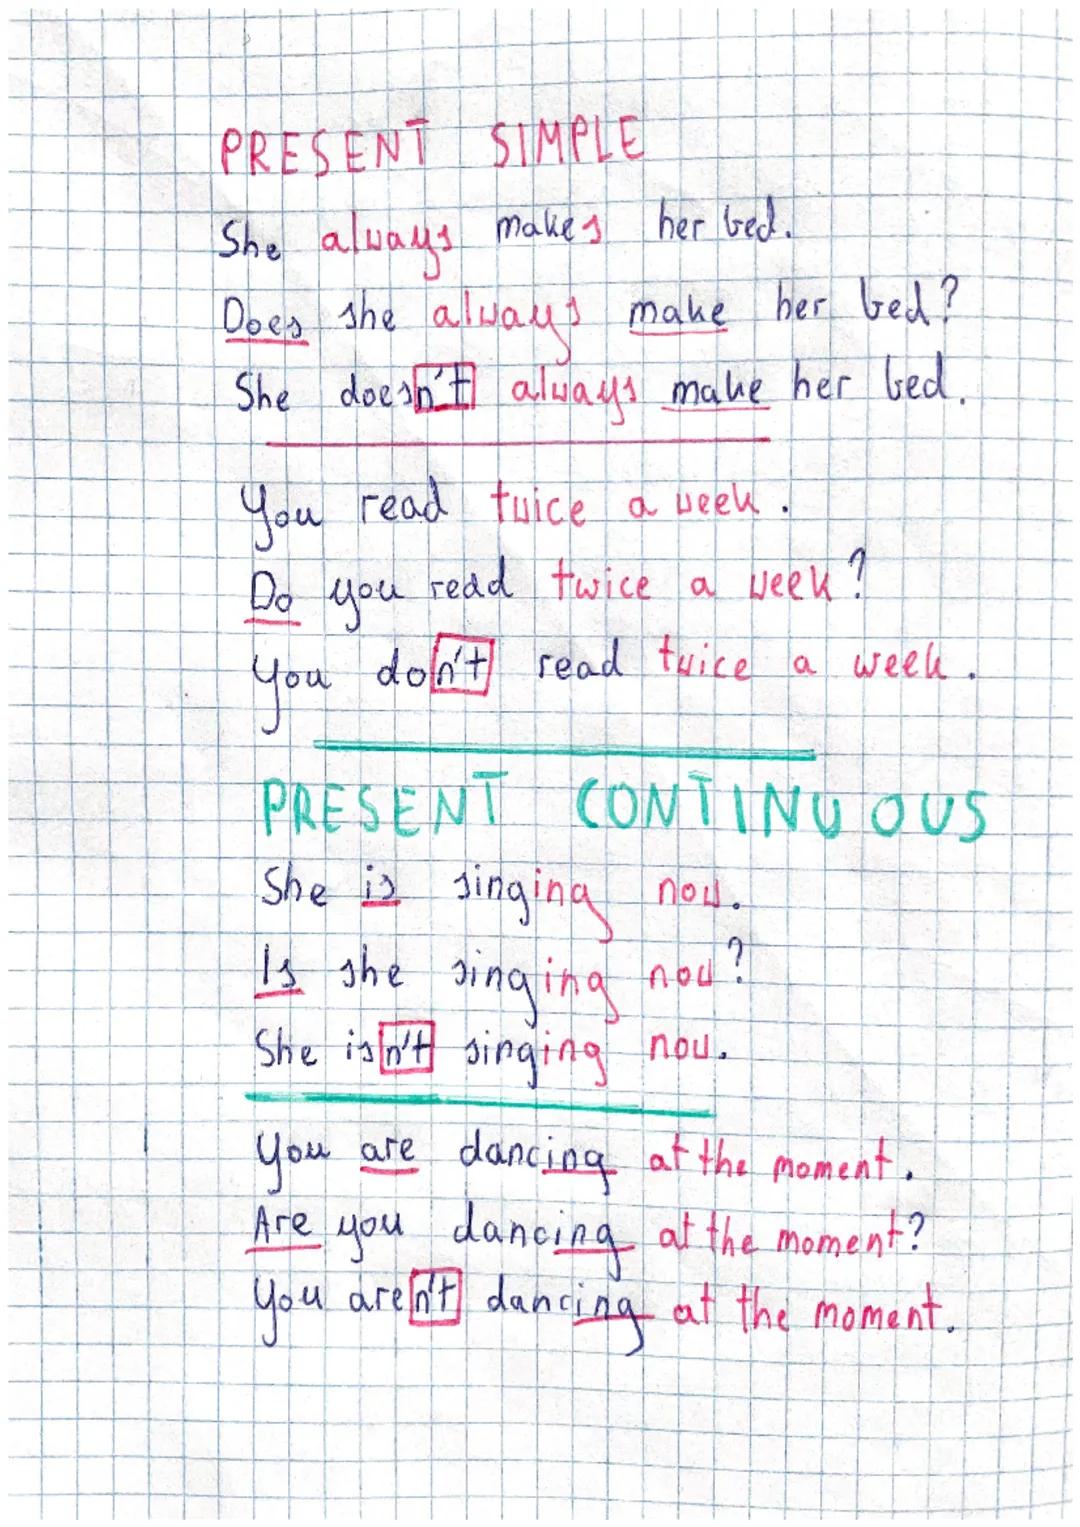 PRESENT SIMPLE
She always makes her bed.
Does she always make her bed?
She doesn't always make her bed.
You read twice a week.
Do you read twice a week?
You don't read twice a week.
PRESENT CONTINUOUS
She is singing now.
Is she singing now?
She isn't singing now.
You are dancing at the moment.
Are you dancing at the moment?
You aren't dancing at the moment.